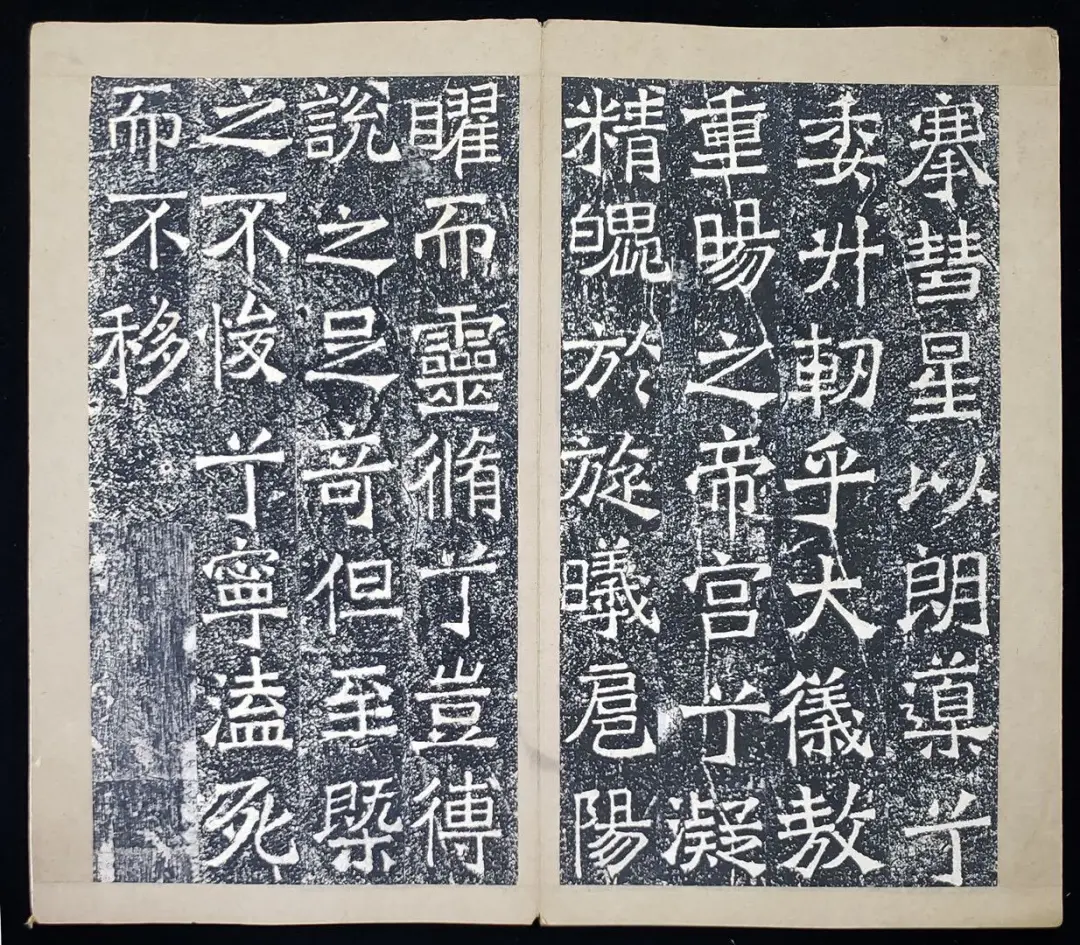 搴彗星以朗導兮
委升軔乎大儀敖
重暘之帝宫兮凝
精魄於旋曦扈陽
曜而靈脩兮豈傅
說之足奇但至槩
之不悛兮寧溘死
而不移